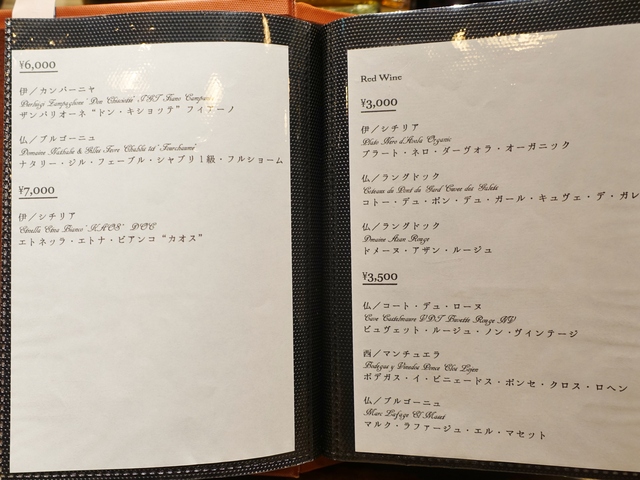 ¥6,000
伊／カンパーニャ
Pierluigi Zampaglione "Don Chisciotte" IGT Fiano Campania
ザンパリオーネ“ドン・キショッテ”フィアーノ
仏／ブルゴーニュ
Domaine Nathalie & Gilles Fèvre Chablis 1er Fourchaume
ナタリー・ジル・フェーブル・シャブリ1級・フルショーム
¥7,000
伊／シチリア
Etnella Etna Bianco "KAOS" DOC
エトネッラ・エトナ・ビアンコ“カオス”
Red Wine
¥3,000
伊／シチリア
Prato Nero d'Avola Organic
プラート・ネロ・ダーヴォラ・オーガニック
仏／ラングドック
Coteaux du Pont du Gard Cuvée des Galets
コトー・デュ・ポン・デュ・ガール・キュヴェ・デ・ガレ
仏／ラングドック
Domaine Azan Rouge
ドメーヌ・アザン・ルージュ
¥3,500
仏／コート・デュ・ローヌ
Cave Castelmaure VDT Buvette Rouge NV
ビュヴェット・ルージュ・ノン・ヴィンテージ
西／マンチュエラ
Bodegas y Vinedos Ponce Clos Lojen
ボデガス・イ・ビニェードス・ポンセ・クロス・ロヘン
仏／ブルゴーニュ
Marc Lafage El Maset
マルク・ラファージュ・エル・マセット